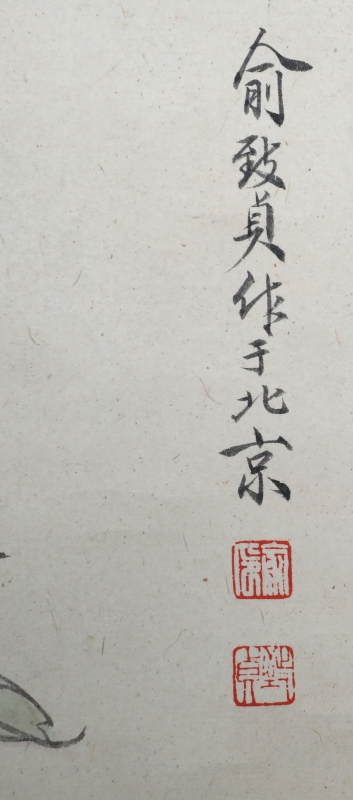 俞致貞作于北京